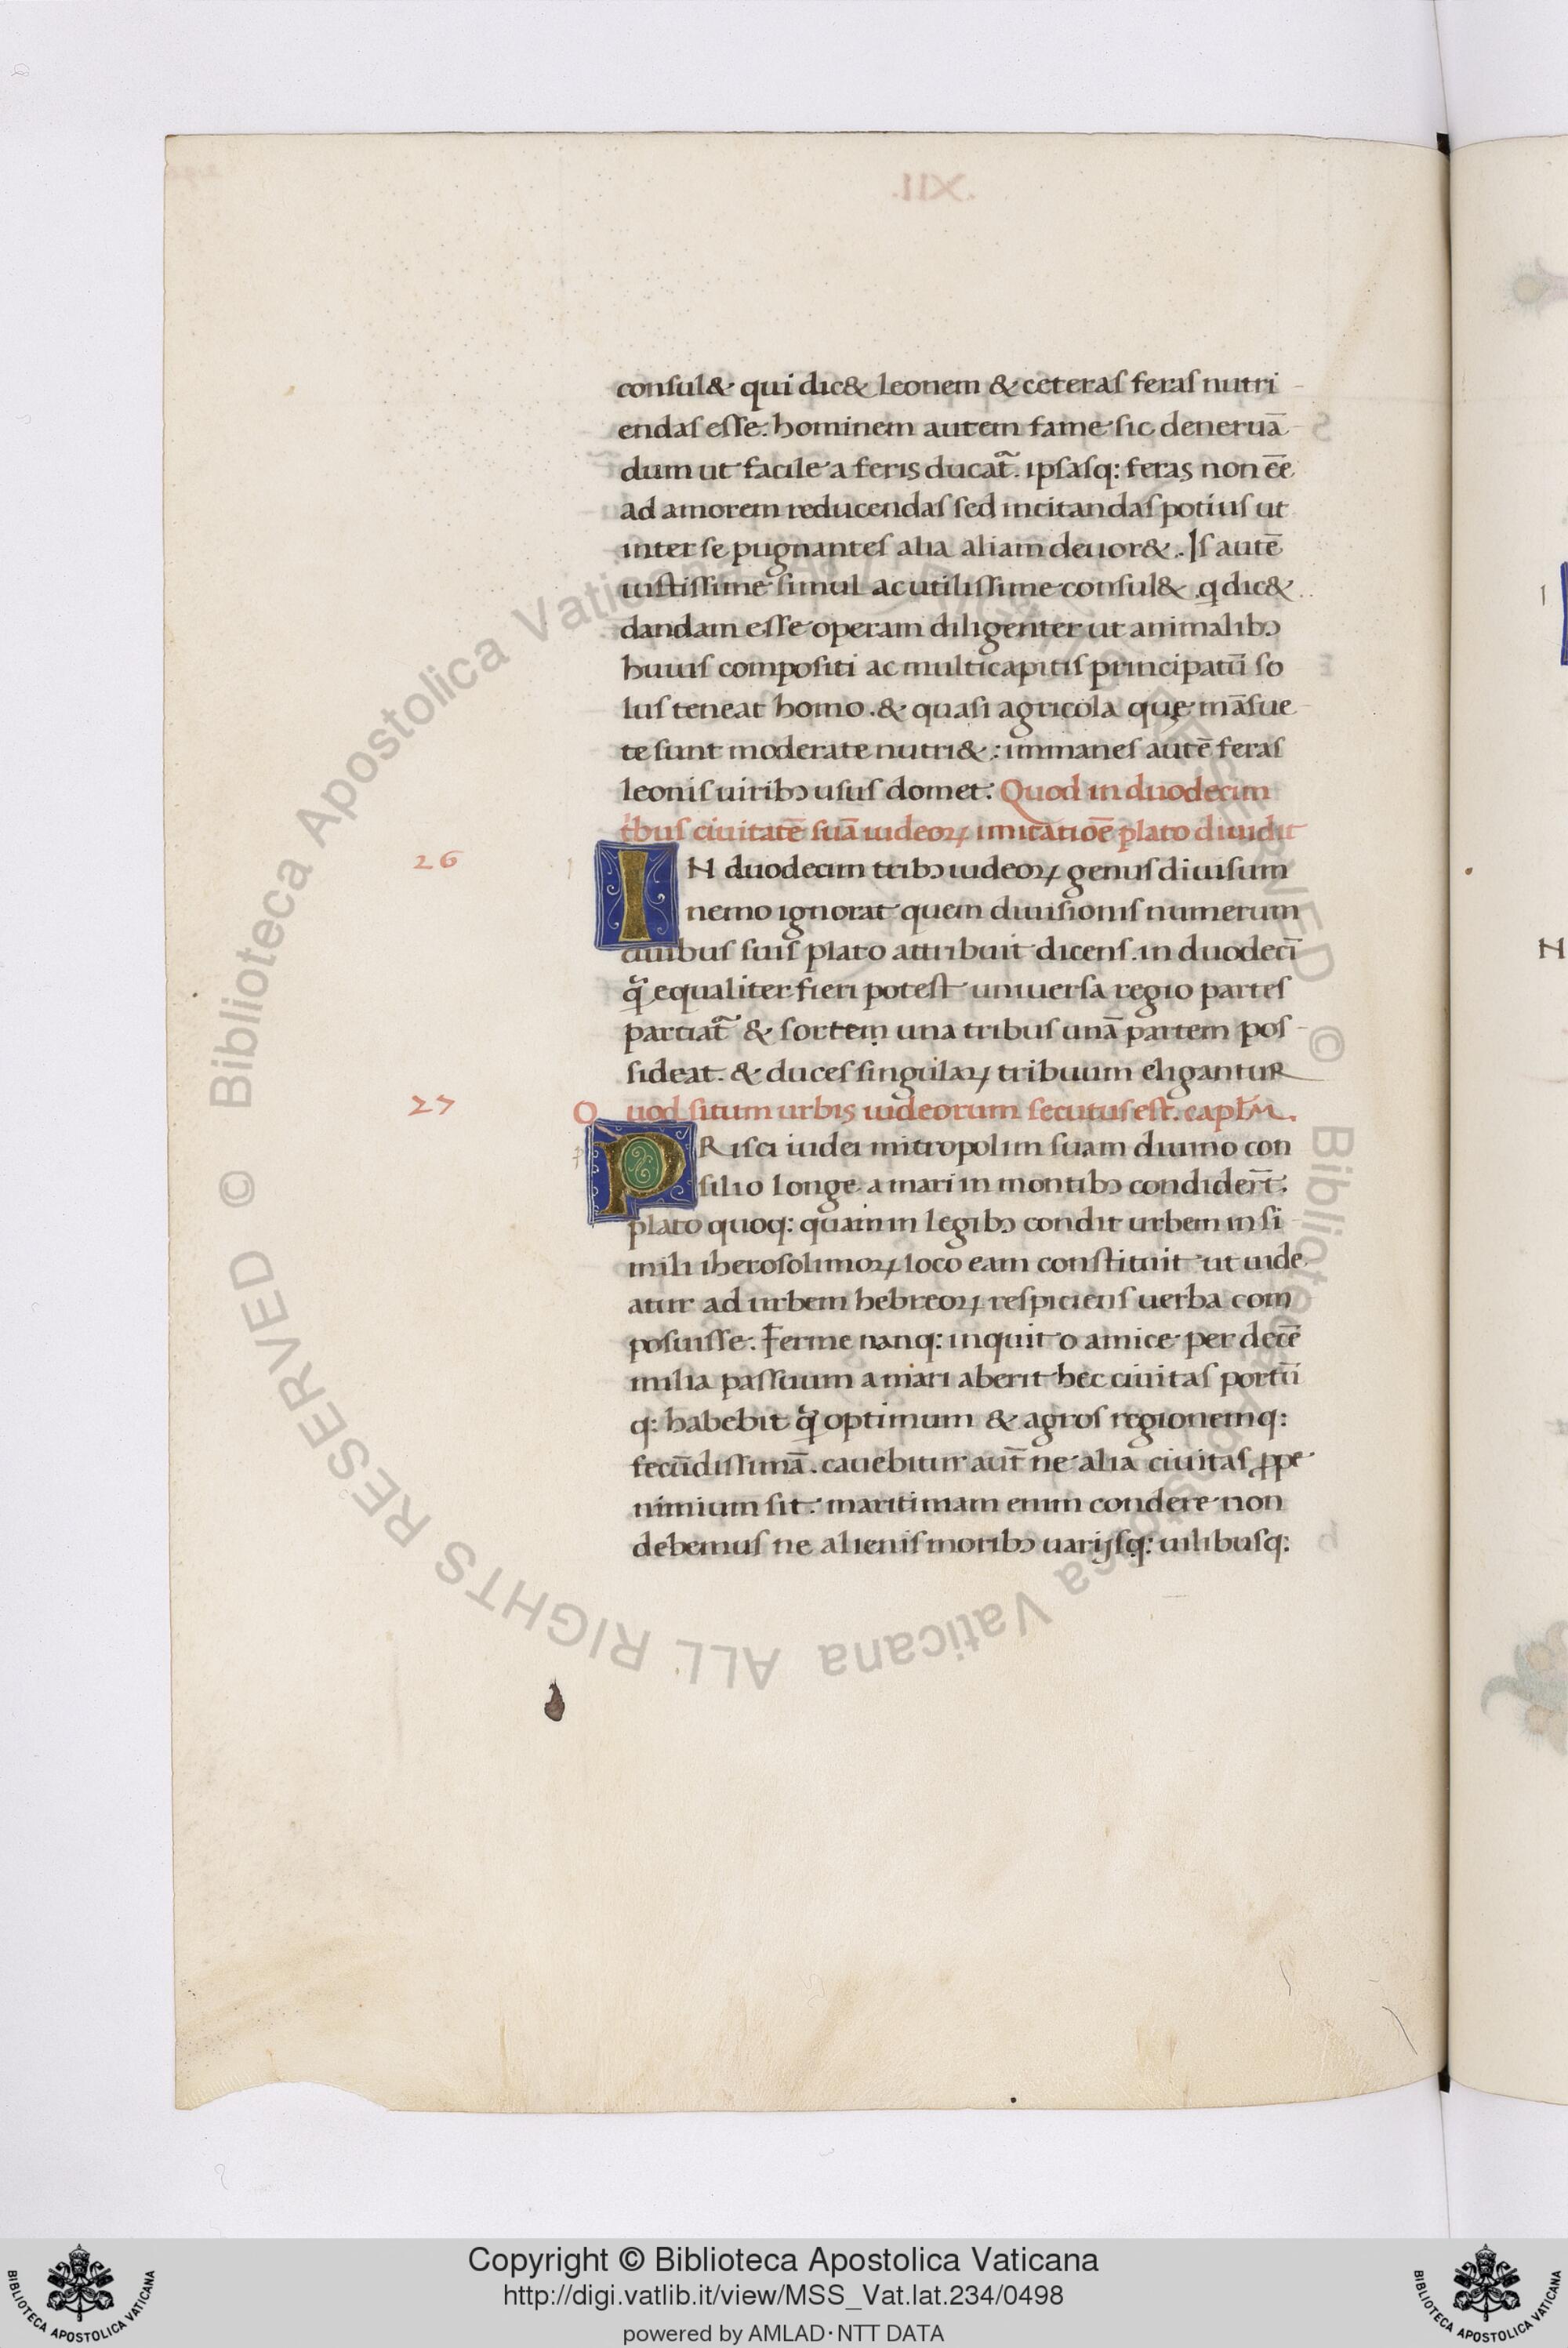 consul& qui dic& leonem & ceteras feras nutri
endas esse. hominem autem fame sic deneruā
dum ut facile a feris ducat᷑. ipsasq: feras non eē
ad amorem reducendas sed incitandas potius ut
inter se pugnantes alia aliam deuor&. Is autē
iustissime simul ac utilissime consul& q dic&
dandam esse operam diligenter ut animalibꝰ
huius compositi ac multicapitis principatū so
lus teneat homo. & quasi agricola quę māsue
te sunt moderate nutri&: immanes autē feras
leonis uiribꝰ usus domet. Quod in duodecim
t̄bus ciuitatē suā iudeoꝝ imitatiōe plato diuidit
26
IN duodecim tribꝰ iudeoꝝ genus diuisum
nemo ignorat quem diuisionis numerum
ciuibus suis plato attribuit dicens. in duodecī
q̄ equaliter fieri potest uniuersa regio partes
partiat᷑ & sortem una tribus unā partem pos
sideat. & duces singulaꝝ tribuum eligantur
27
Quod situm urbis iudeorum secutus est. captm̄.
PRisci iudei mitropolim suam diuino con
silio longe a mari in montibꝰ condider̄t.
plato quoq: quam in legibꝰ condit urbem in si
mili iherosolimoꝝ loco eam constituit ut uide
atur ad urbem hebreoꝝ respiciens uerba com
posuisse. Ferme nanq: inquit o amice per decē
milia passuum a mari aberit hec ciuitas portū
q: habebit q̄ optimum & agros regionemq:
fecūdissimā. cauebitur aut̄ ne alia ciuitas ꝓpe
nimium sit. maritimam enim condere non
debemus ne alienis moribꝰ uarijsq: uilibusq:
.XII.
© Biblioteca Apostolica Vaticana ALL RIGHTS RESERVED © Biblioteca Apostolica Vaticana ALL RIGHTS RESERVED
Copyright © Biblioteca Apostolica Vaticana
http://digi.vatlib.it/view/MSS_Vat.lat.234/0498
powered by AMLAD·NTT DATA
BIBLIOTECA APOSTOLICA VATICANA
BIBLIOTECA APOSTOLICA VATICANA